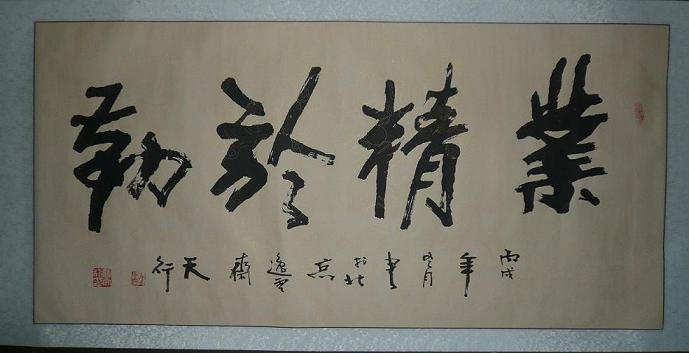 業精於勤
丙戌年冬月書於北京逸雲齋天行